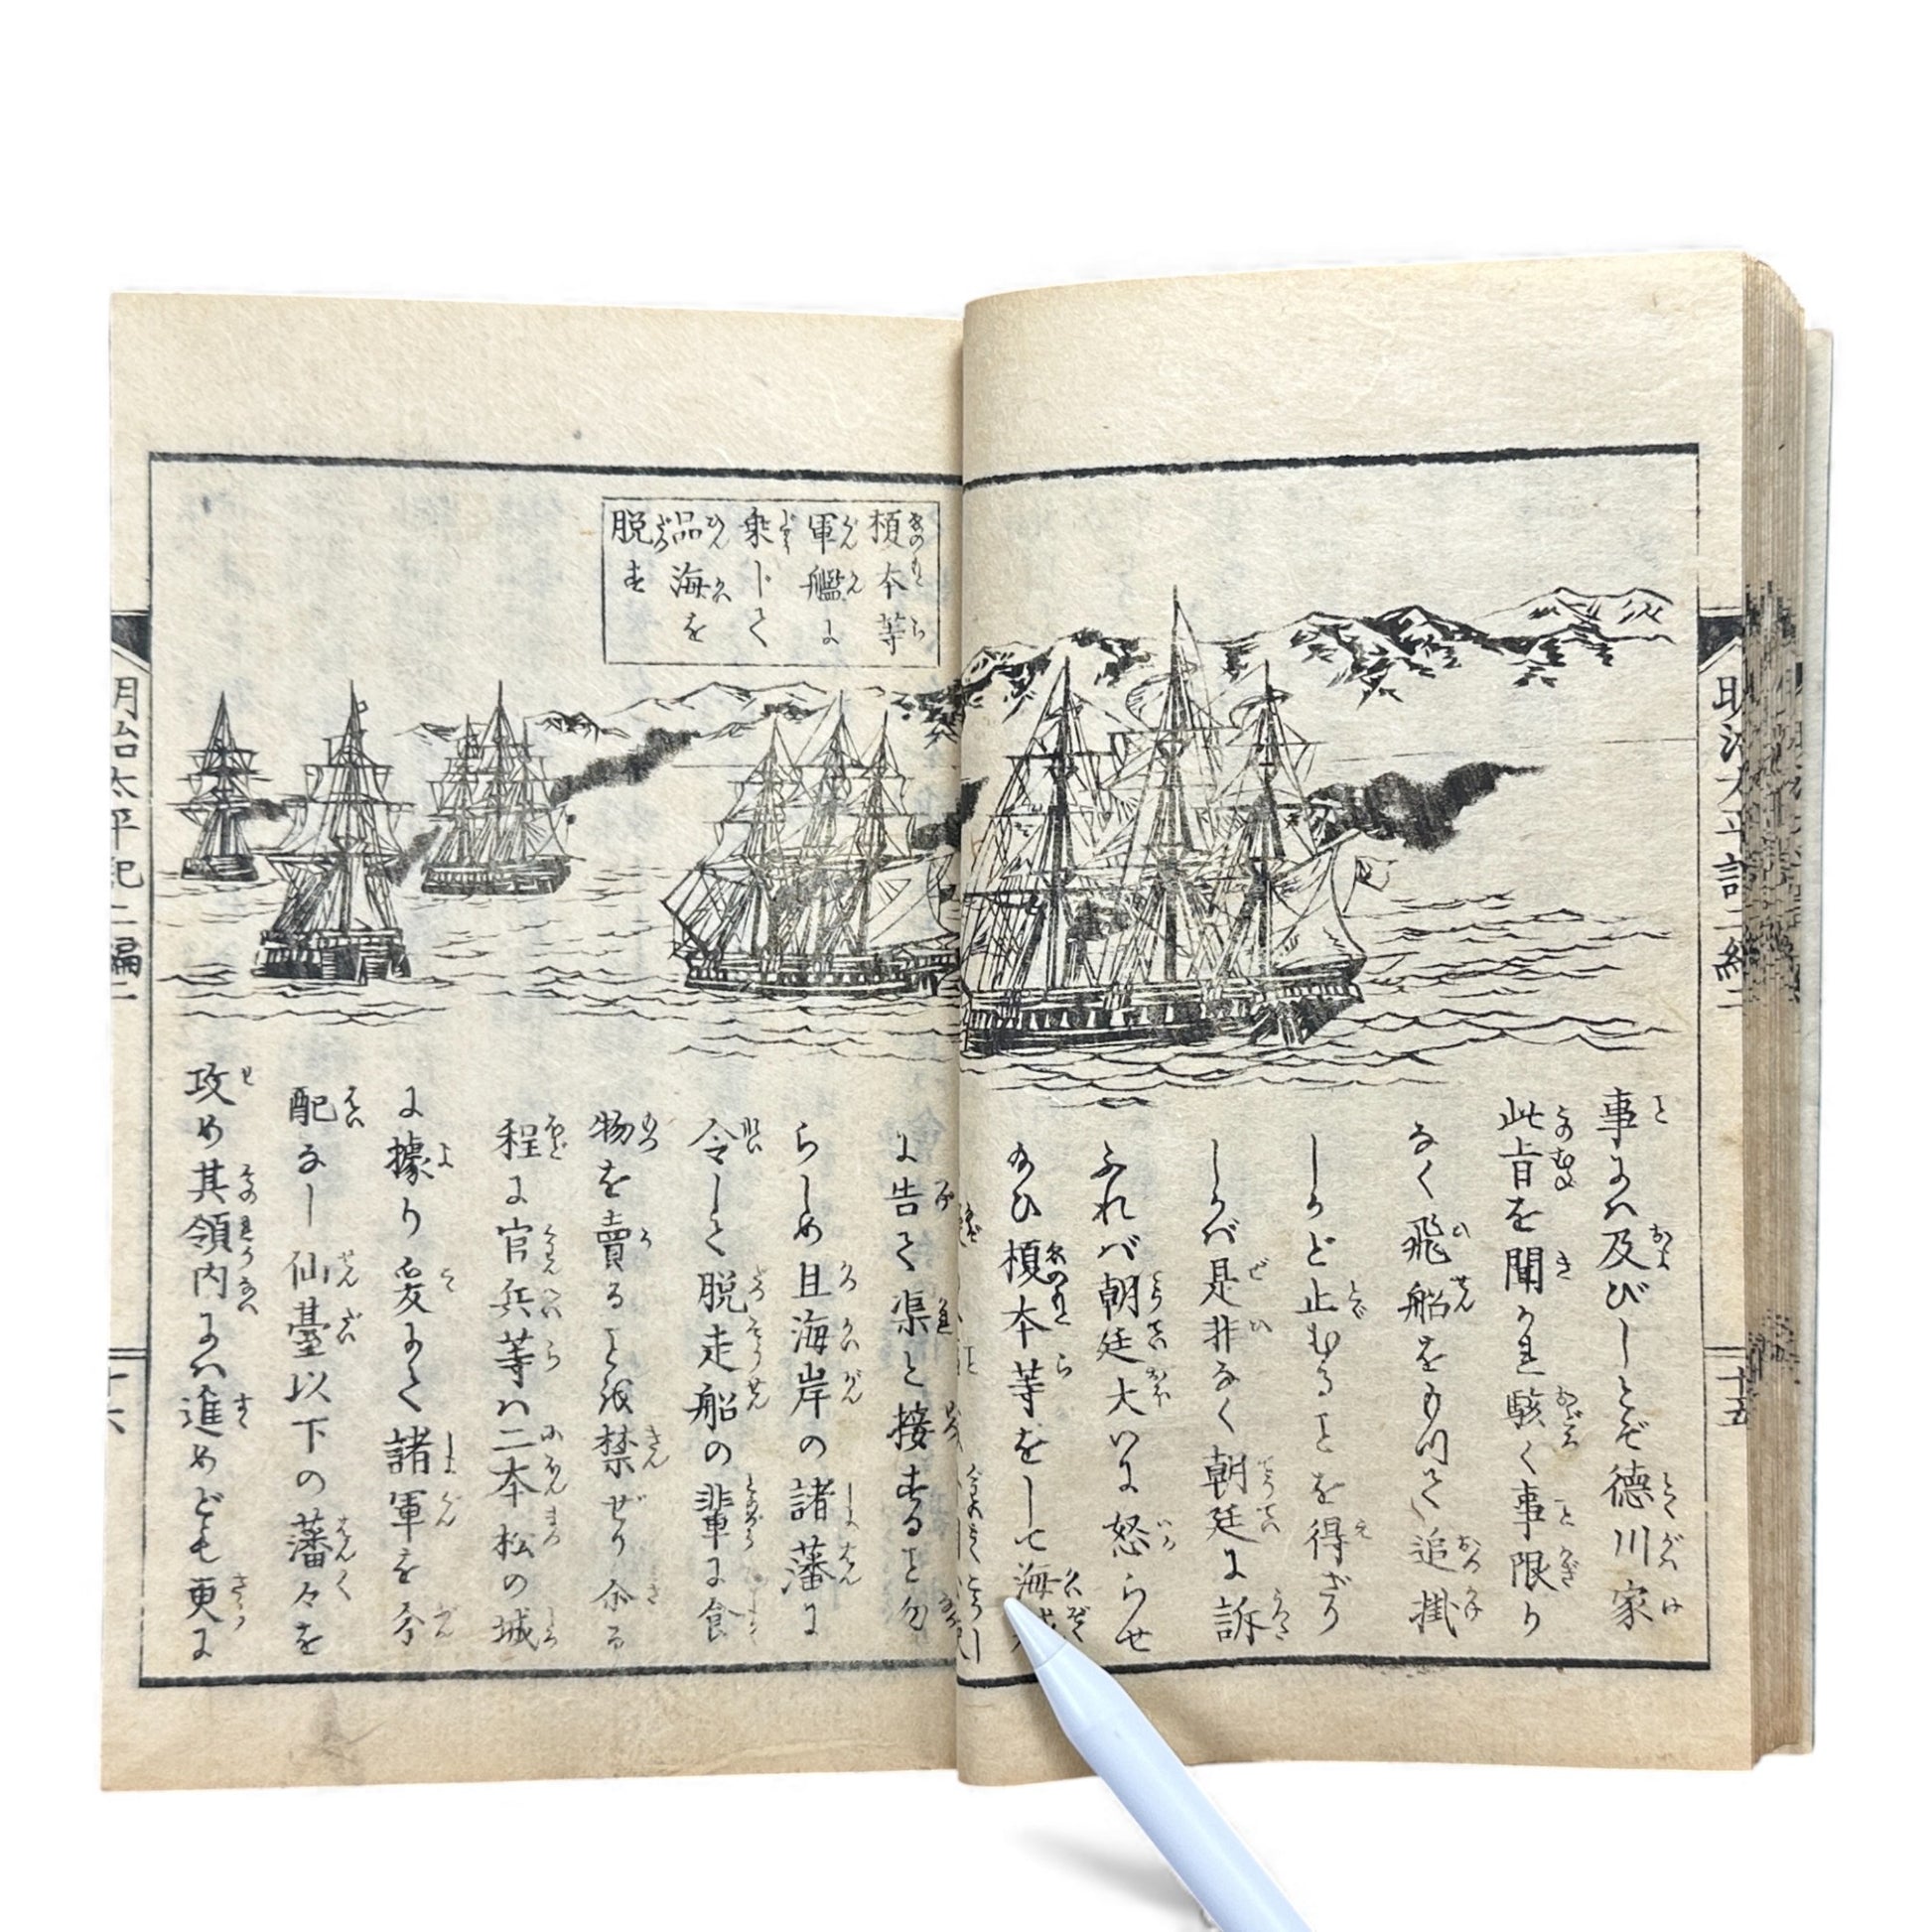 明治太平記二編二
十五
事には及びしとぞ徳川家
此旨を聞かれ駭く事限り
なく飛船をもつて追掛
しかど止むることを得ざり
しかバ是非なく朝廷に訴
ふれバ朝廷大いに怒らせ
給ひ榎本等をして海
榎本等
軍艦に
乗じて
品海を
脱す
に告て渠と接することを勿
らしめ且海岸の諸藩に
令して脱走船の輩に食
物を賣ることを禁ぜり余る
程に官兵等ハ二本松の城
に據り爰にて諸軍を分
配なし仙臺以下の藩々を
攻め其領内には進めども更に
明治太平記二編二
十六